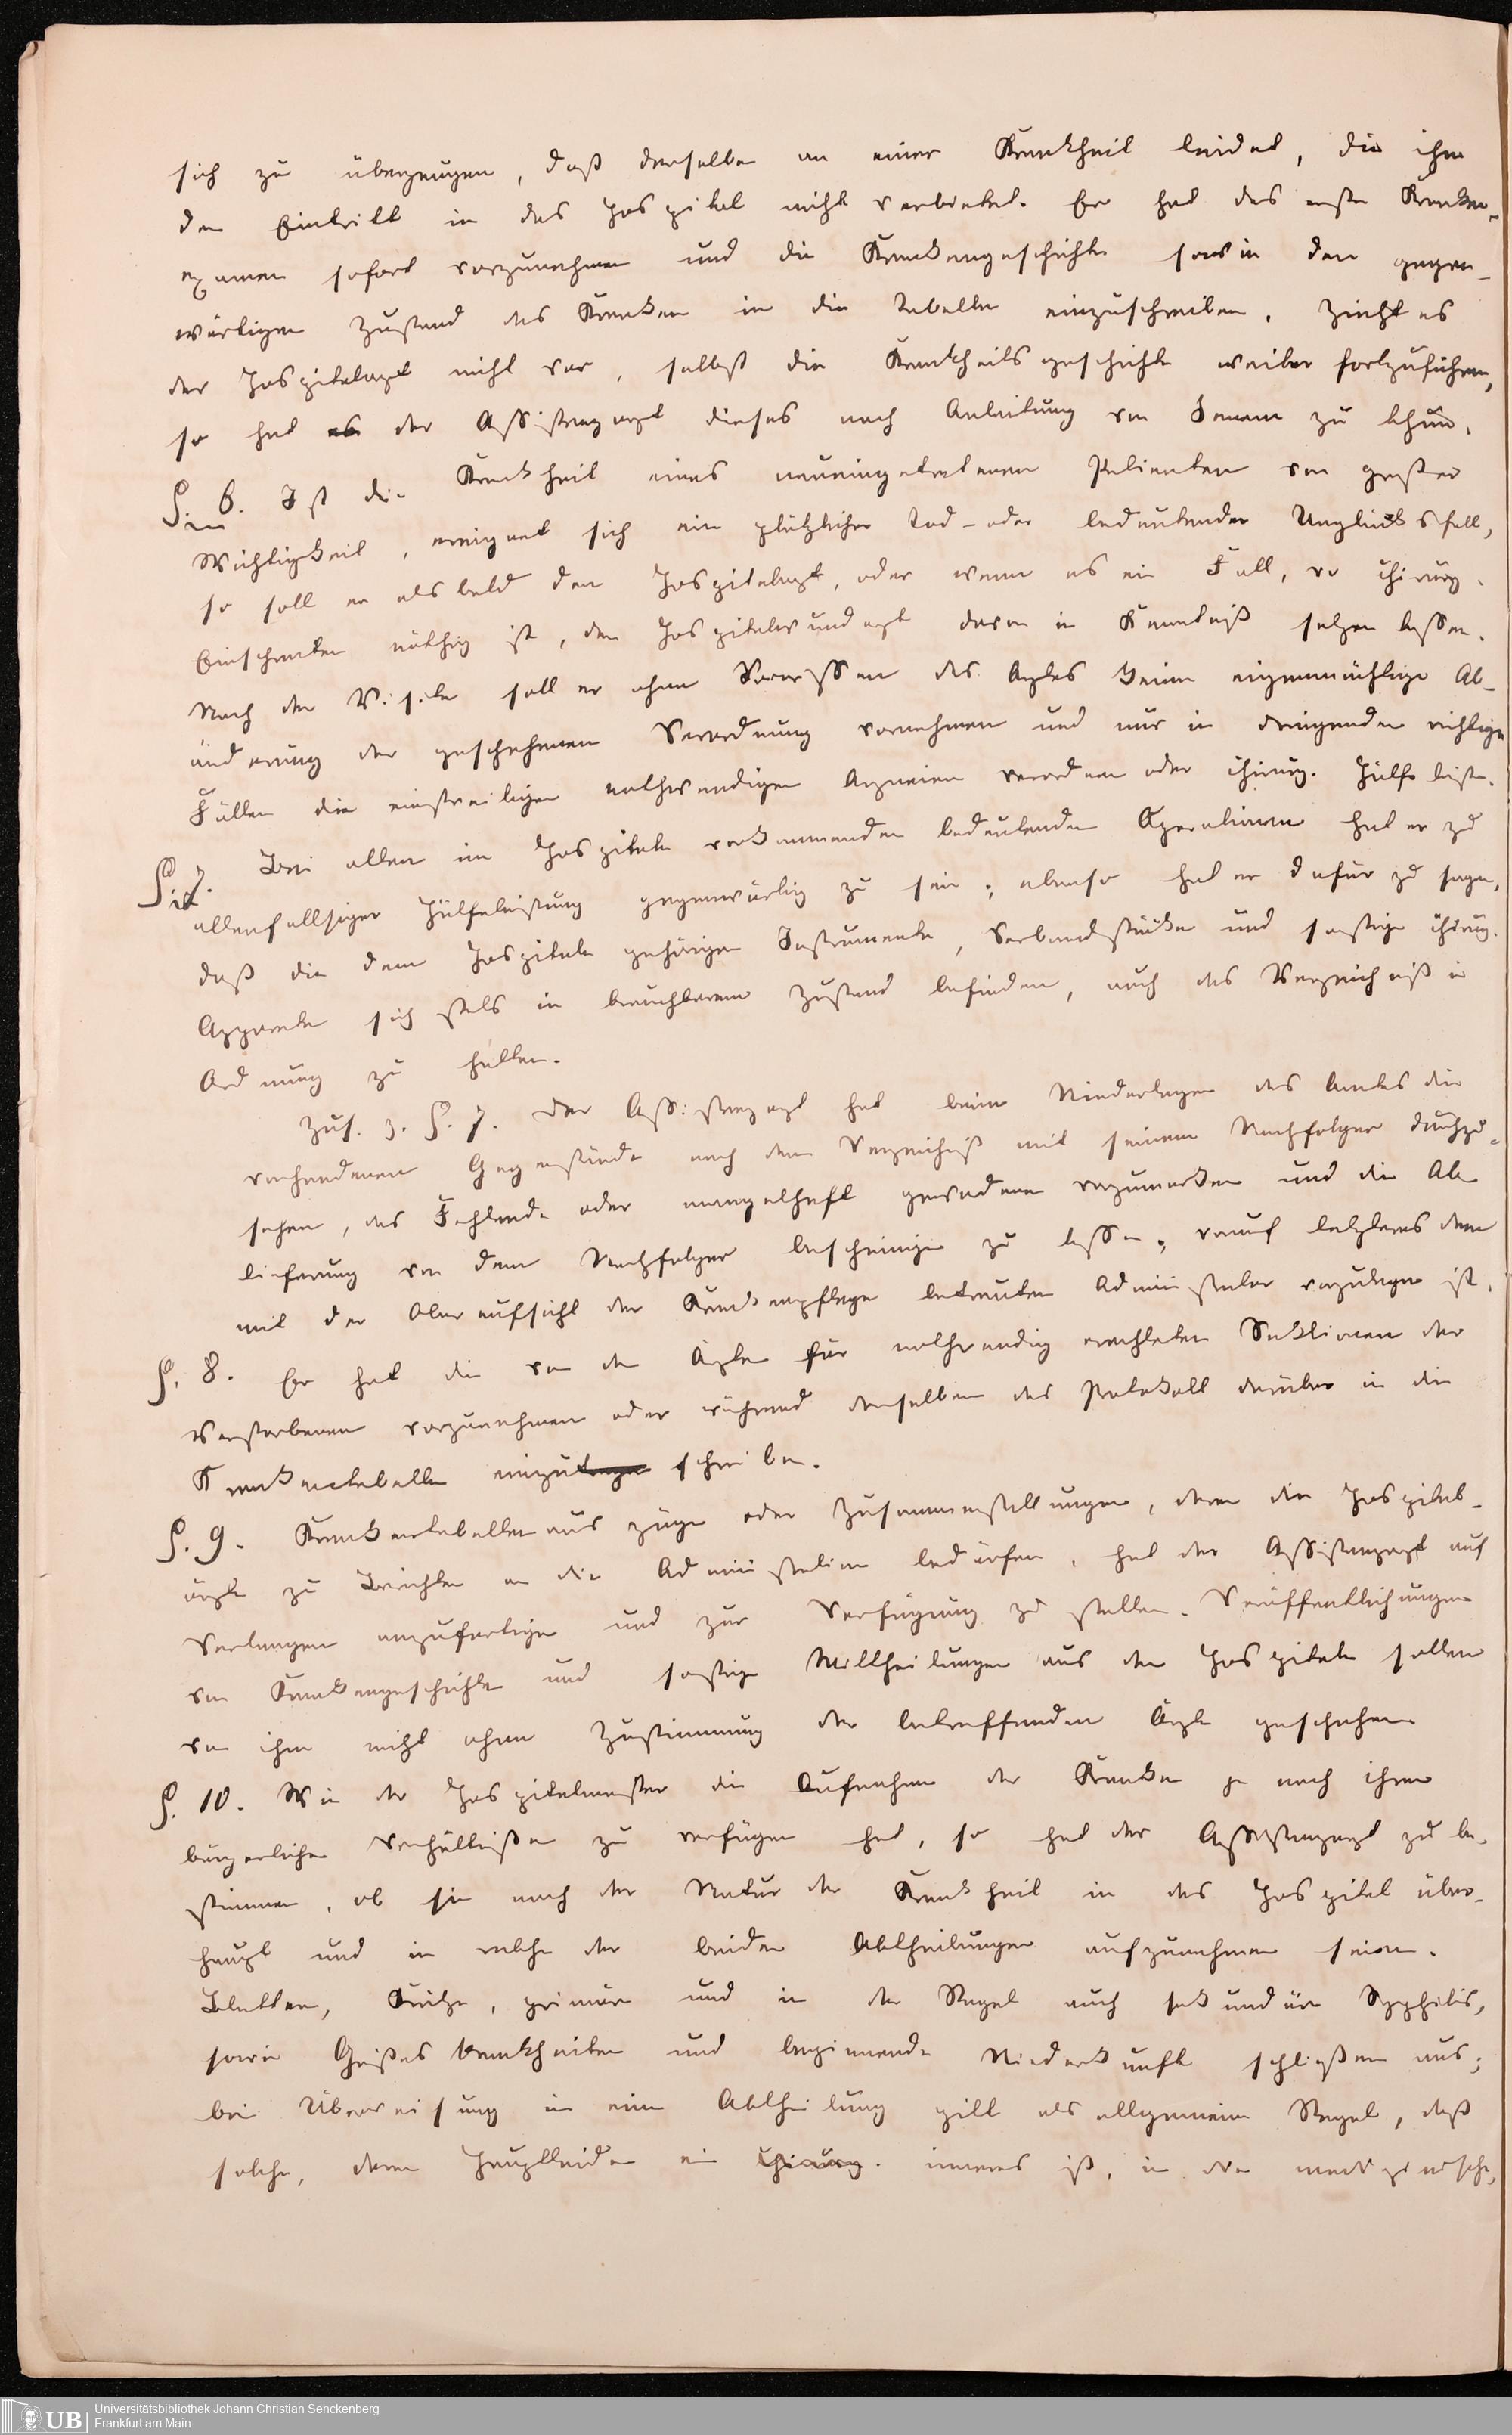 sich zu überzeugen, daß derselbe an einer Krankheit leidet, die ihm
den Eintritt in das Hospital nicht verbietet. Er hat das erste Kranken-
examen sofort vorzunehmen und die Krankengeschichte sowie den gegen-
wärtigen Zustand des Kranken in die Tabelle einzuschreiben. Zieht es
der Hospitalarzt nicht vor, selbst die Krankheitsgeschichte weiter fortzuführen,
so hat es der Assistenzarzt dieses nach Anleitung von Jenem zu thun.
§. 6. Ist die Krankheit eines neueingetretenen Patienten von großer
Wichtigkeit, ereignet sich ein plötzlicher Tod- oder bedeutender Unglücksfall,
so soll er alsbald den Hospitalarzt, oder wenn es ein Fall, wo chirurg.
Einschreiten nöthig ist, den Hospitalwundarzt davon in Kenntniß setzen lassen.
Nach der Visite soll er ohne Vorwissen des Arztes keine eigenmächtige Ab-
änderung der geschehenen Verordnung vornehmen und nur in dringenden wichtigen
Fällen die einstweiligen nothwendigen Arzneien verordnen oder chirurg. Hülfe leisten.
§. 7. Bei allen im Hospitale vorkommenden bedeutenden Operationen hat er zu
allenfallsiger Hülfeleistung gegenwärtig zu sein; ebenso hat er dafür zu sorgen,
daß die dem Hospitale gehörigen Instrumente, Verbandstücke und sonstige chirurg.
Apparate sich stets in brauchbarem Zustand befinden, auch das Verzeichniß in
Ordnung zu halten.
Zus. z. §. 7. Der Assistenzarzt hat beim Niederlegen des Amtes die
vorhandenen Gegenstände nach dem Verzeichniß mit seinem Nachfolger durchzu-
sehen, das Fehlende oder mangelhaft gewordene vorzumerken und die Ab-
lieferung von dem Nachfolger bescheinigen zu lassen; worauf letzteres dem
mit der Oberaufsicht der Krankenpflege betrauten Administrator vorzulegen ist.
§. 8. Er hat die von den Ärzten für nothwendig erachteten Sektionen der
Verstorbenen vorzunehmen oder während derselben das Protokoll darüber in die
Krankentabelle einzutragen schreiben.
§. 9. Krankentabellenauszüge oder Zusammenstellungen, deren die Hospital-
ärzte zu Berichten an die Administration bedürfen, hat der Assistenzarzt auf
Verlangen anzufertigen und zur Verfügung zu stellen. Veröffentlichungen
von Krankengeschichten und sonstige Mittheilungen aus dem Hospitale sollen
von ihm nicht ohne Zustimmung der betreffenden Ärzte geschehen
§. 10. Wie der Hospitalmeister die Aufnahme der Kranken je nach ihren
bürgerlichen Verhältnißen zu verfügen hat, so hat der Assistenzarzt zu be-
stimmen, ob sie nach der Natur der Krankheit in das Hospital über-
haupt und in welche der beiden Abtheilungen aufzunehmen seien.
Blattern, Krätze, primäre und in der Regel auch sekundäre Syphilis,
sowie Geisteskrankheiten und beginnende Niederkunft schließen aus;
bei Überweisung in eine Abtheilung gilt als allgemeine Regel, daß
solche, deren Hauptleiden ein chirurg. inneres ist, in die medizinische,